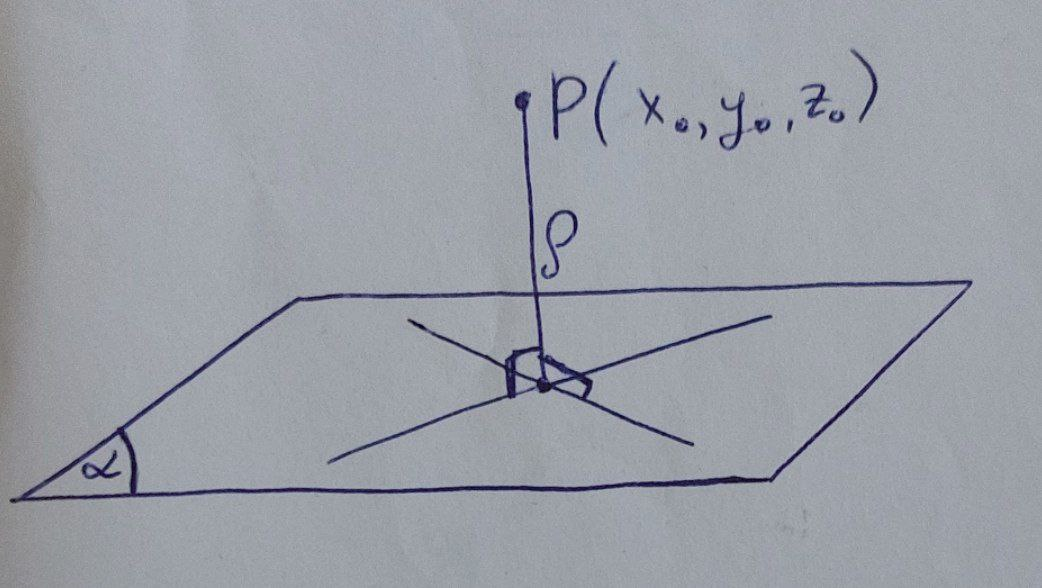 P(x₀, y₀, z₀)
ρ
α